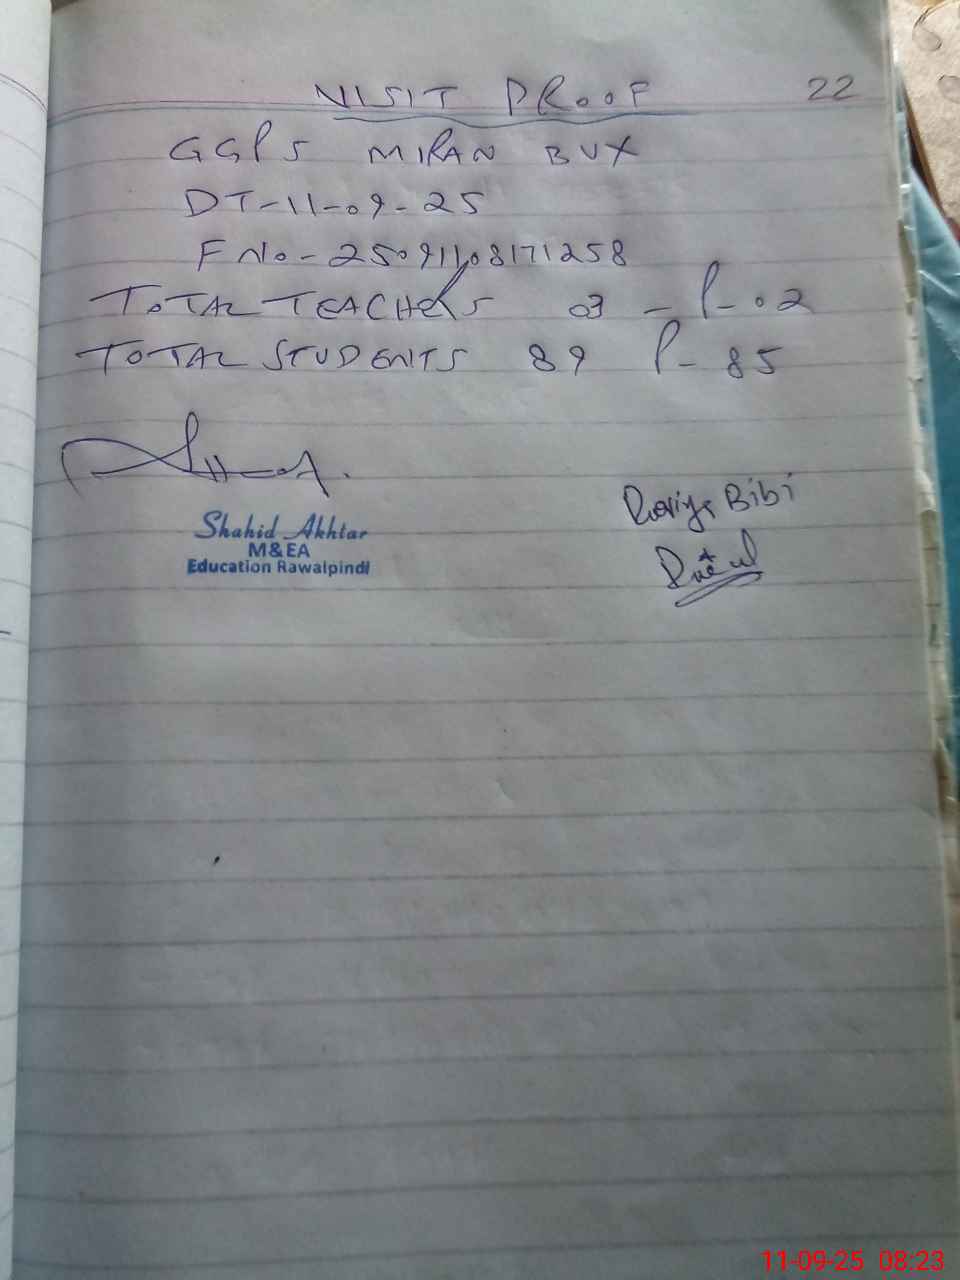 VISIT PROOF 22
GGPS MIRAN BUX
DT-11-09-25
F No-25091108171258
TOTAL TEACHERS 03 - P-02
TOTAL STUDENTS 89 P-85
Shahid Akhtar
M&EA
Education Rawalpindi
Bibi
11-09-25 08:23